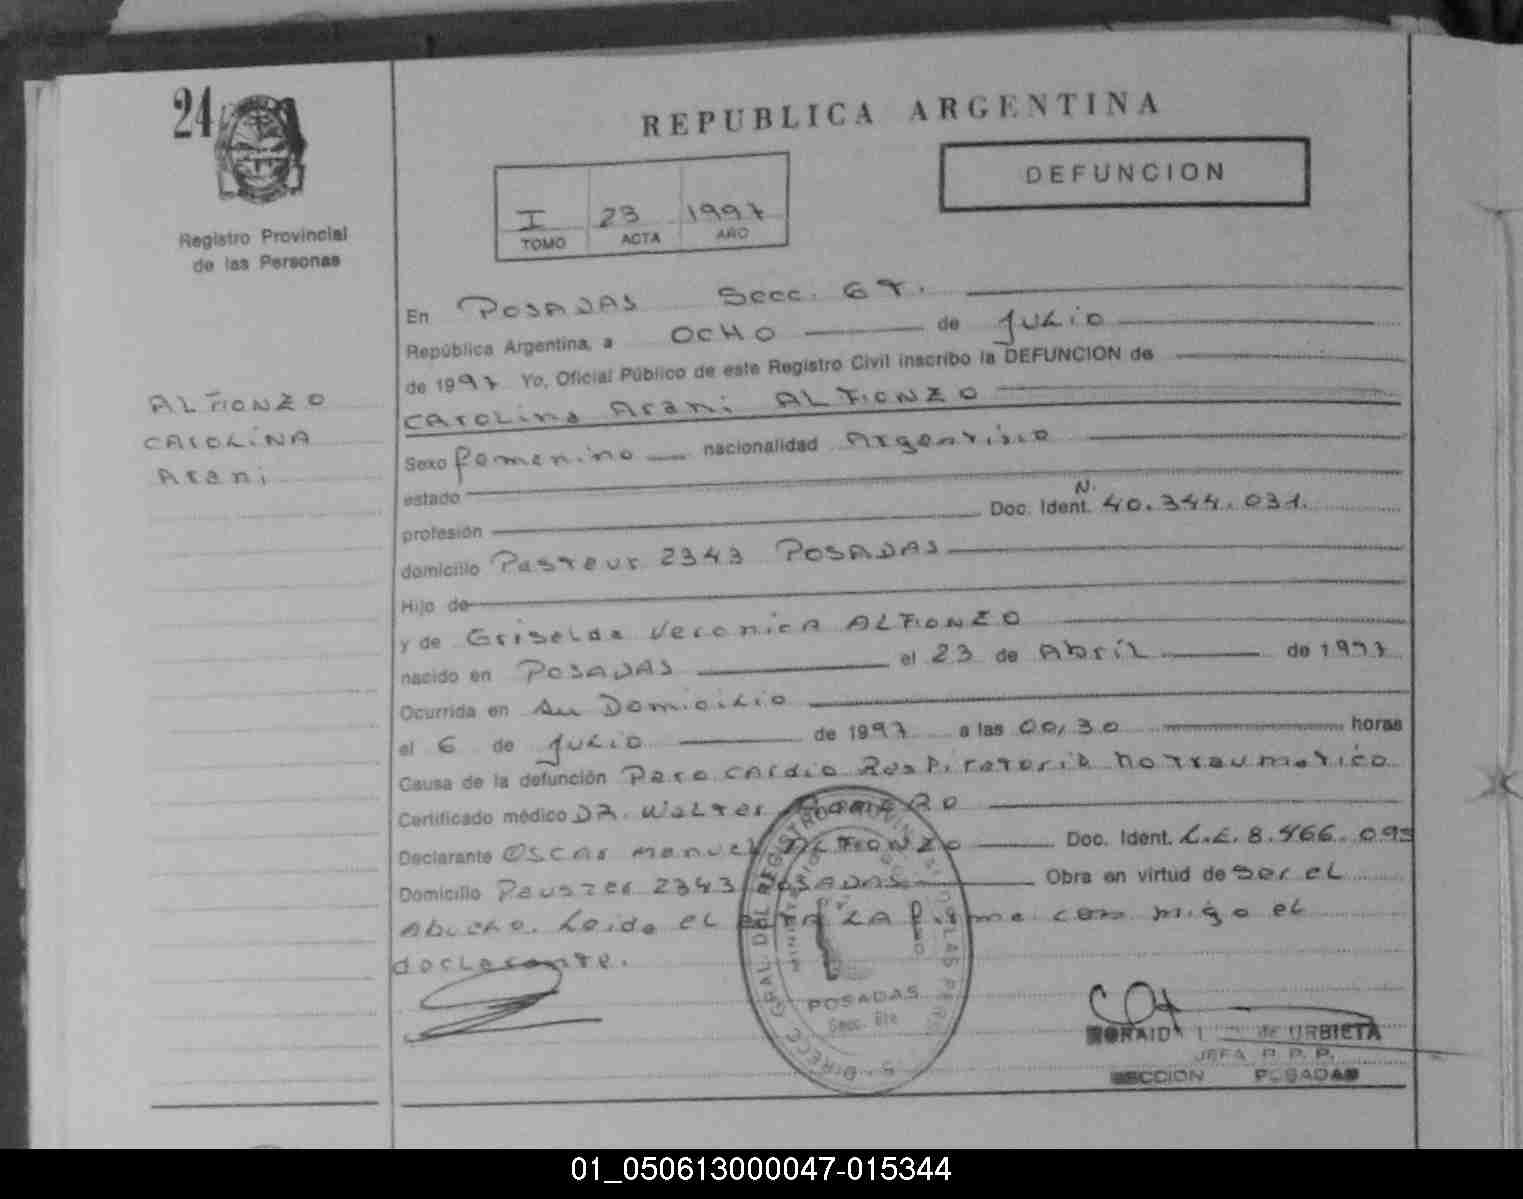 24
REPUBLICA ARGENTINA
DEFUNCION
I 23 1997
TOMO ACTA AÑO
Registro Provincial
de las Personas
ALFONZO
CAROLINA
Arani
En POSADAS Secc. 6ta.
República Argentina, a OCHO de JULIO
de 1997 Yo, Oficial Público de este Registro Civil inscribo la DEFUNCION de
CAROLINA Arani ALFONZO
Sexo femenino nacionalidad Argentina
estado
profesión Doc. Ident. N. 40.344.031.
domicilio Pasteur 2343 POSADAS
Hijo de
y de Griselda Veronica ALFONZO
nacido en POSADAS el 23 de Abril de 1997
Ocurrida en su Domicilio
el 6 de JULIO de 1997 a las 00,30 horas
Causa de la defunción Paro cardio Respiratorio no traumatico
Certificado médico DR. Walter ROMERO
Declarante OSCAR manuel ALFONZO Doc. Ident. L.E. 8.466.095
Domicilio 2343 POSADAS Obra en virtud de Ser el
Abuelo. Leida el acta LA firma con migo el
declarante.
POSADAS
Secc. 6ta
de URBIETA
JEFA R. P. P.
SECCION POSADAS
01_050613000047-015344